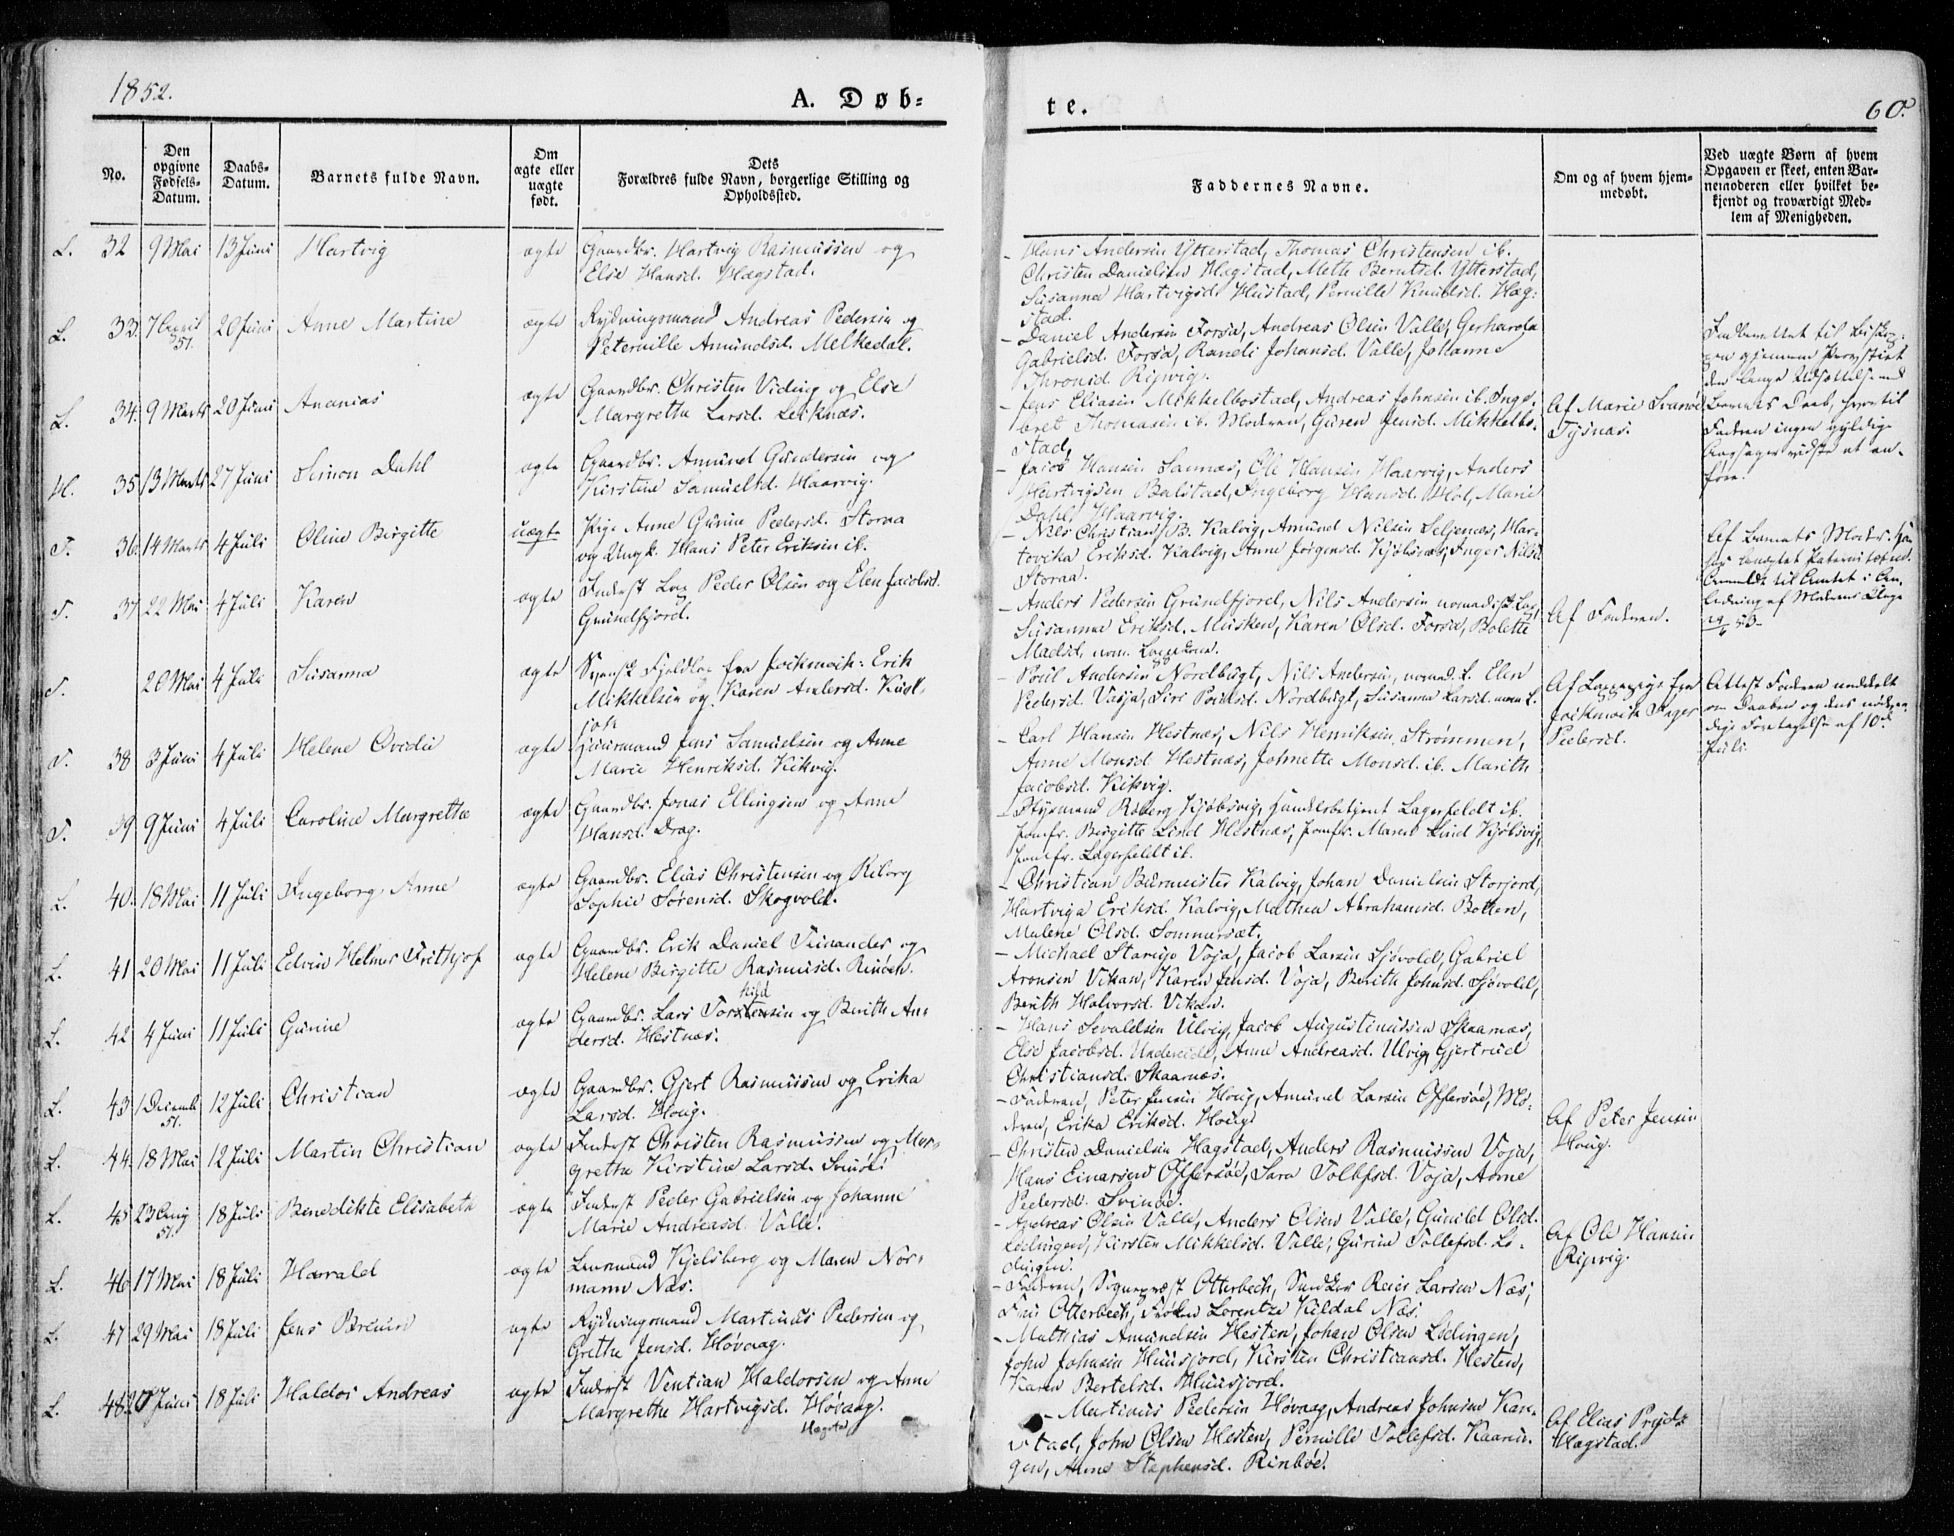 1852.
A. Døb=
te.
60.
No.
Den opgivne Fødsels-Datum.
Daabs-Datum.
Barnets fulde Navn.
Om ægte eller uægte født.
Dets Forældres fulde Navn, borgerlige Stilling og Opholdssted.
Faddernes Navne.
Om og af hvem hjem-medøbt.
Ved uægte Børn af hvem Opgaven er skeet, enten Bar-nemoderen eller hvilket be-kjendt og troværdigt Med-lem af Menigheden.
L. 32 9 Mai 13 Juni Hartvig ægte Gaardbr. Hartvig Rasmussen og
Else Hansd. Hægstad.
- Hans Andersen Ytterstad, Thomas Christensen ib.
Christen Danielsen Hægstad, Methe Berntsd. Ytterstad,
Susanna Hartvigsd. Hustad, Pernille Knudsd. Hæg-
stad.
L. 33. 51. 20 Juni Anne Martine ægte Rydningsmand Andreas Pedersen og
Peternille Amundsd. Melkedal.
- Daniel Andersen Forsa, Andreas Olsen Valle, Gerharda
Gabrielsd. Forsa, Randi Johansd. Valle, Johanne
Thronsd. Rijvig.
L. 34. 9 Marts 20 Juni Ananias ægte Gaardbr. Christen Viding og Else
Margrethe Larsd. Leiknæs.
- Jens Eliasen Mikkelbostad, Andreas Johnsen ib. Inge-
bret Thomasen ib. Moderen, Guren Jensd. Mikkelbo-
stad.
Af Marie
Tysnæs.
Barnets Daab, hvortil
Faderen ingen gyldige
Aarsager vidste at an-
føre.
H. 35 13 Marts 27 Juni Simon Dahl ægte Gaardbr. Amund Gundersen og
Kirstine Samuelsd. Haarvig.
- Jacob Hansen Sannæs, Ole Hansen Haarvig, Anders
Hartvigsen Balstad, Ingeborg Hansd. Hol, Marie
Dahl, Haarvig.
T. 36. 14 Marts 4 Juli Oline Birgitte uægte Pige Anne Gurine Pedersd. Storaa
og Ungk. Hans Peter Eriksen ib.
- Nils Christian B. Kalvig, Amund Nilsen Seljenæs, Har-
tvika Eriksd. Kalvig, Anne Jørgensd. Kjøbsnæs, Inger Nilsd.
Storaa.
Af Barnets Moder.
T. 37 22 Mai 4 Juli Karen ægte Inderst Lap Peder Olsen og Elen Jacobsd.
Grundfjord.
- Anders Pedersen Grundfjord, Nils Andersen nomadisk Lap,
Susanna Eriksd. Musken, Karen Olsd. Forsa, Bolette
Madsd. nom. Lappekone.
Af Faderen.
T. 20 Mai 4 Juli Susanna ægte Svensk Fjeldlap fra Jockmock: Erik
Mikkelsen og Karen Andersd.
- Poul Andersen Nordbugt, Nils Andersen, nomad. L. Elen
Pedersd. Vasja, Siri Poulsd. Nordbugt, Susanna Larsd. nom. L.
Af Lappepige fra
Jockmock Inger
Pedersd.
Attest Faderen meddelt
om Daaben og dens nødven-
dige Foretagelse af 10d
Juli.
T. 38 3 Juni 4 Juli Helene Ovedie ægte Huusmand Jens Samuelsen og Anne
Marie Henriksd. Kikvig.
- Carl Hansen Hestnæs, Nils Henriksen, Strømmen,
Anne Monsd. Hestnæs, Johnette Monsd. ib. Marith
Jacobsd. Kikvig.
T. 39 9 Juni 4 Juli Caroline Margrethe ægte Gaardbr. Jonas Ellingsen og Anne
Hansd. Drag.
- Styrmand Roberg Kjøbsvig, Handelsbetjent Lagerfeldt ib.
Jomfr. Birgitte Lind Hestnæs, Jomfr. Maren Lind Kjøbsvig,
Jomfr. Lagerfeldt ib.
L. 40. 18 Mai 11 Juli Ingeborg Anne ægte Gaardbr. Elias Christensen og Reborg
Sophie Sørensd. Skogvold.
- Christian Burmeister Kalvig, Johan Danielsen Storjord,
Hartviga Eriksd. Kalvig, Mathea Abrahamsd. Botten,
Malene Olsd. Sommersæt.
L. 41 20 Mai 11 Juli Edvin Helmer Frithjof ægte Gaardbr. Erik Daniel Finander og
Helene Birgitte Rasmusd. Rinøen.
- Michael Staruje Voja, Jacob Larsen Sjøvold, Gabriel
Aronsen Vikan, Karen Jensd. Voja, Berith Johnsd. Sjøvold,
Berith Halvorsd. Vikan.
L. 42 4 Juni 11 Juli Gurine ægte Gaardbr. Lars Torstensen og Berith An-
kild
dersd. Hestnæs.
- Hans Sevaldsen Ulvig, Jacob Augustinussen Skaarnæs,
Else Jacobsd. Anne Andreasd. Ulvig, Gjertrud
Christiansd. Skaarnæs.
L. 43 1 Decemb. 51. 12 Juli Christian ægte Gaardbr. Gjert Rasmussen og Erika
Larsd. Houg.
- Faderen, Peter Jensen Houg, Amund Larsen Offersøe, Mo-
deren, Erika Eriksd. Houg.
Af Peter Jensen
Houg.
L. 44. 18 Mai 12 Juli Martin Christian ægte Inderst Christen Rasmussen og Mar-
grethe Kirstine Larsd. Svinøe
- Christen Danielsen Hægstad, Anders Rasmussen Voja,
Hans Einarsen Offersøe, Sara Tollefsd. Voja, Anne
Pedersd. Svinøe.
L. 45 23 Aug 51. 18 Juli Benedikte Elisabeth ægte Inderst Peder Gabrielsen og Johanne
Marie Andreasd. Valle.
- Andreas Olsen Valle, Anders Olsen Valle, Gunild Olsd.
Lødingen, Kirsten Mikkelsd. Valle, Gurine Tollefsd. Lø-
dingen.
Af Ole Hansen
Rijvig.
L. 46 17 Mai 18 Juli Harald ægte Lensmand Kjelsberg og Maren Nor-
mann Næs.
- Faderen, Sognepræst Otterbech, Reier Larsen Næs,
Fru Otterbech, Frøken Lorentze Kildal Næs.
L. 47 29 Mai 18 Juli Jens Breuin ægte Rydningsmand Martinus Pedersen og
Grethe Jensd. Høvaag.
- Mathias Amundsen Hesten, Johan Olsen Lødingen,
John Johnsen Huusjord, Kirsten Christiansd. Hesten,
Karen Bertelsd. Huusjord.
L. 48. Juni 18 Juli Haldor Andreas ægte Inderst Ventian Haldorsen og Anne
Margrethe Hartvigsd. Høvaag.
Hægstad
- Martinus Pedersen Høvaag, Andreas Johnsen Kan-
stad, John Olsen Hesten, Pernille Tollefsd. Kaarin-
gen, Anne Stephensd. Rinbøe.
Af Elias Prydz
Hægstad.